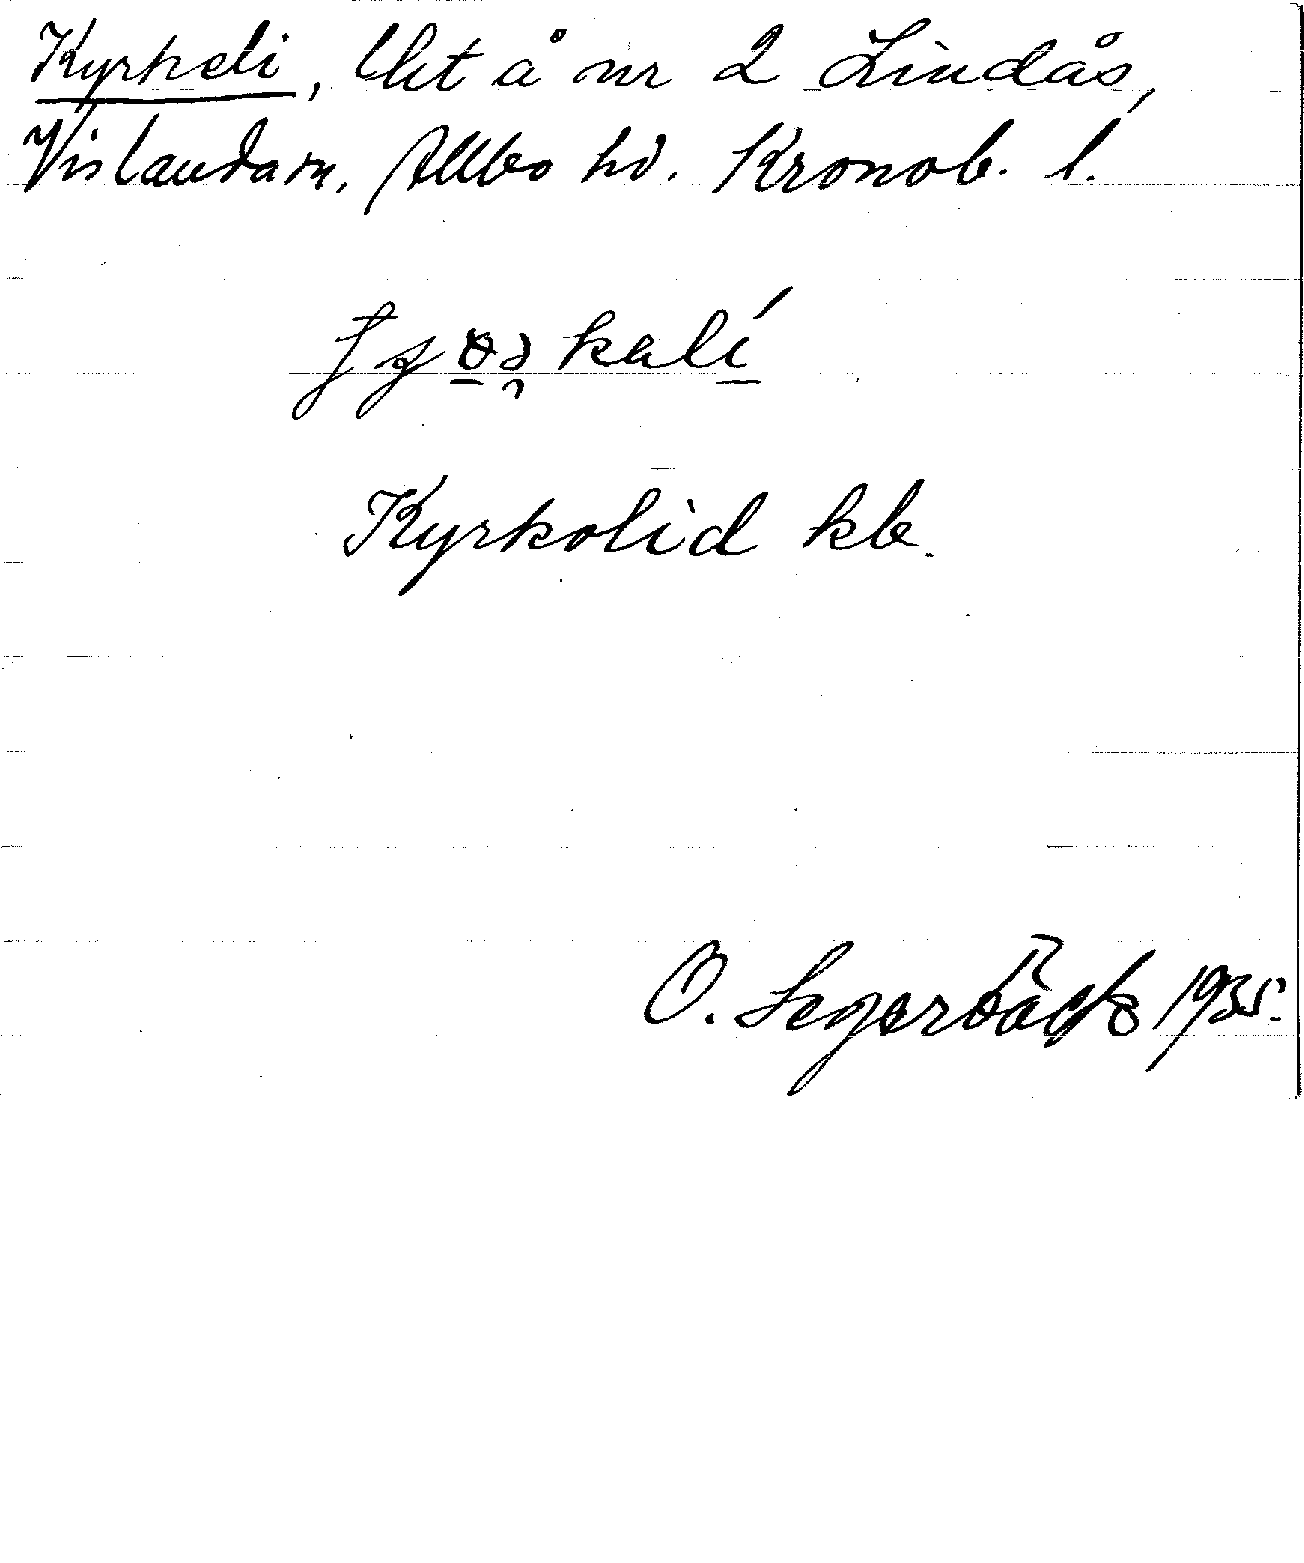 Kyrkeli, lht å nr 2 Lindås,
Vislanda sn. Allbo hd. Kronob. l.
kalí
Kyrkolid kb.
O. Segerbäck 1935.